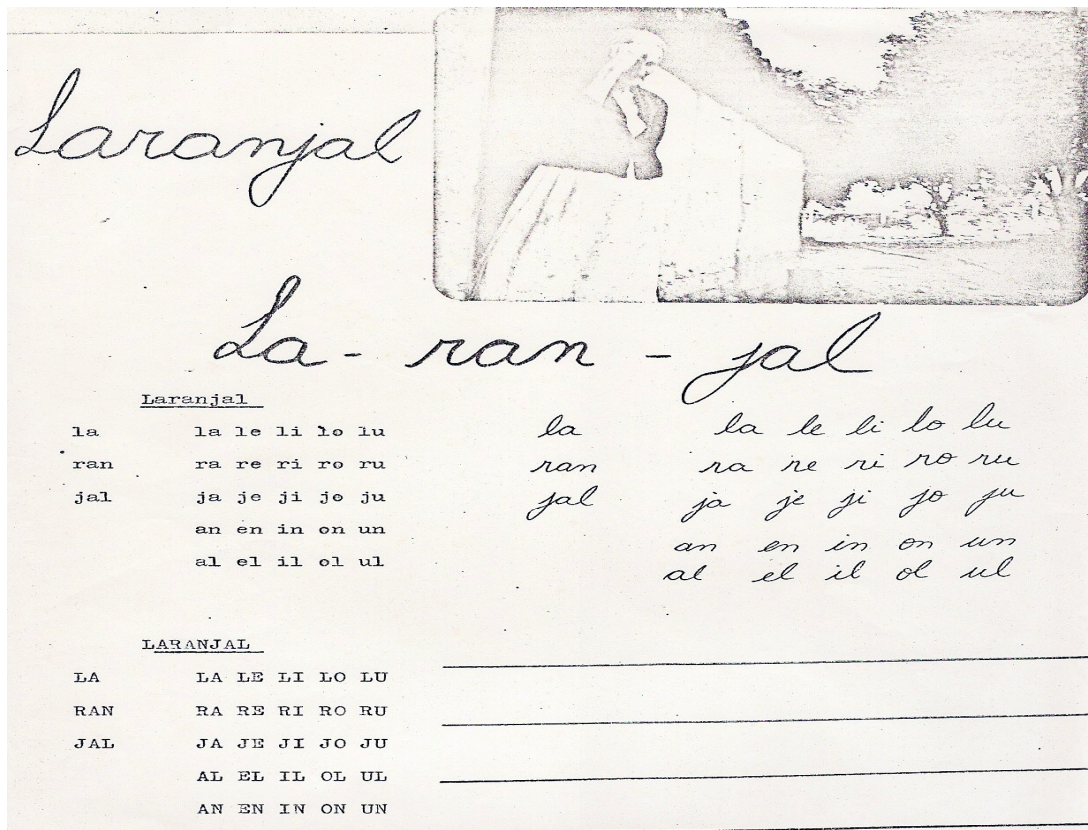 Laranjal
La - ran - jal
Laranjal
la la le li lo lu
ran ra re ri ro ru
jal ja je ji jo ju
an en in on un
al el il ol ul
la la le li lo lu
ran ra re ri ro ru
jal ja je ji jo ju
an en in on un
al el il ol ul
LARANJAL
LA LA LE LI LO LU
RAN RA RE RI RO RU
JAL JA JE JI JO JU
AL EL IL OL UL
AN EN IN ON UN